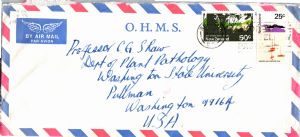 O. H. M. S.
BY AIR MAIL
PAR AVION
50c
25c
Professor C G Shaw
Dept of Plant Pathology
Washington State University
Pullman
Washington 99164
USA